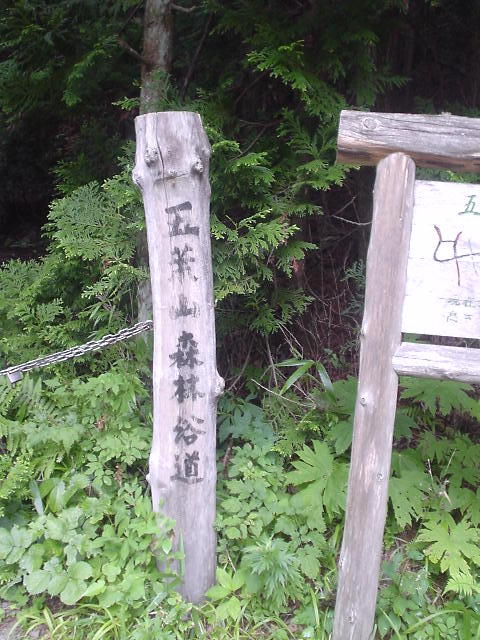 五葉山森林谷道
五